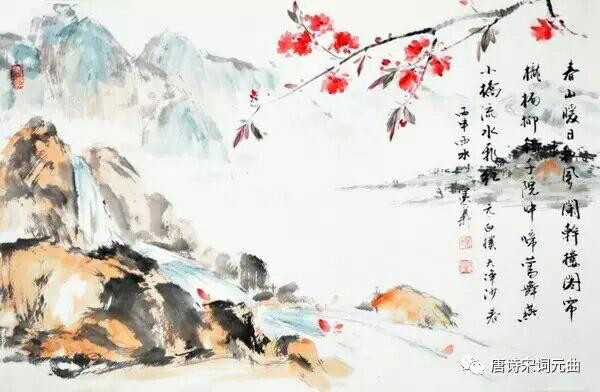 春山暖日和風闌幹樓閣帘
櫳楊柳秋千院中啼鶯舞燕
小橋流水飛紅 元白樸天净沙春
丙申
唐诗宋词元曲